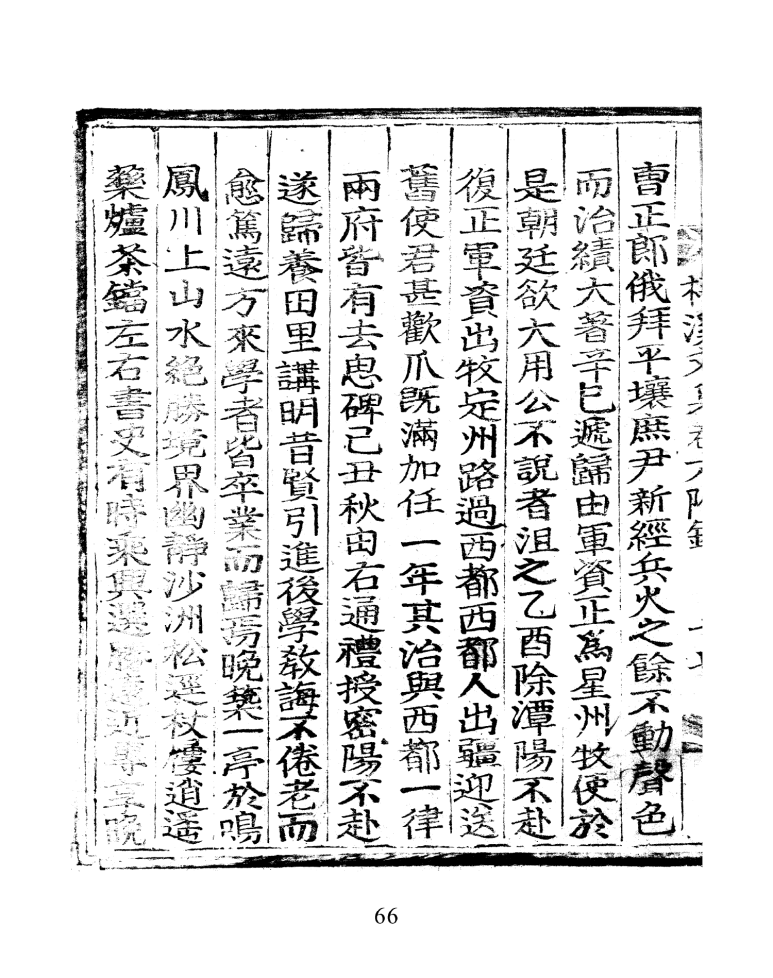 溪文集卷六附錄
曺正郎俄拜平壤庶尹新經兵火之餘不動聲色
而治績大著辛巳遞歸由軍資正爲星州牧使於
是朝廷欲大用公不說者沮之乙酉除潭陽不赴
復正軍資出牧定州路過西都西都人出疆迎送
舊使君甚歡爪旣滿加任一年其治與西都一律
兩府皆有去思碑己丑秋由右通禮授密陽不赴
遂歸養田里講明昔賢引進後學敎誨不倦老而
愈篤遠方來學者皆卒業而歸焉晩築一亭於鳴
鳳川上山水絶勝境界幽靜沙洲松逕杖屨逍遥
藥爐茶鐺左右書史有時乘興選勝遠近專享晩
66